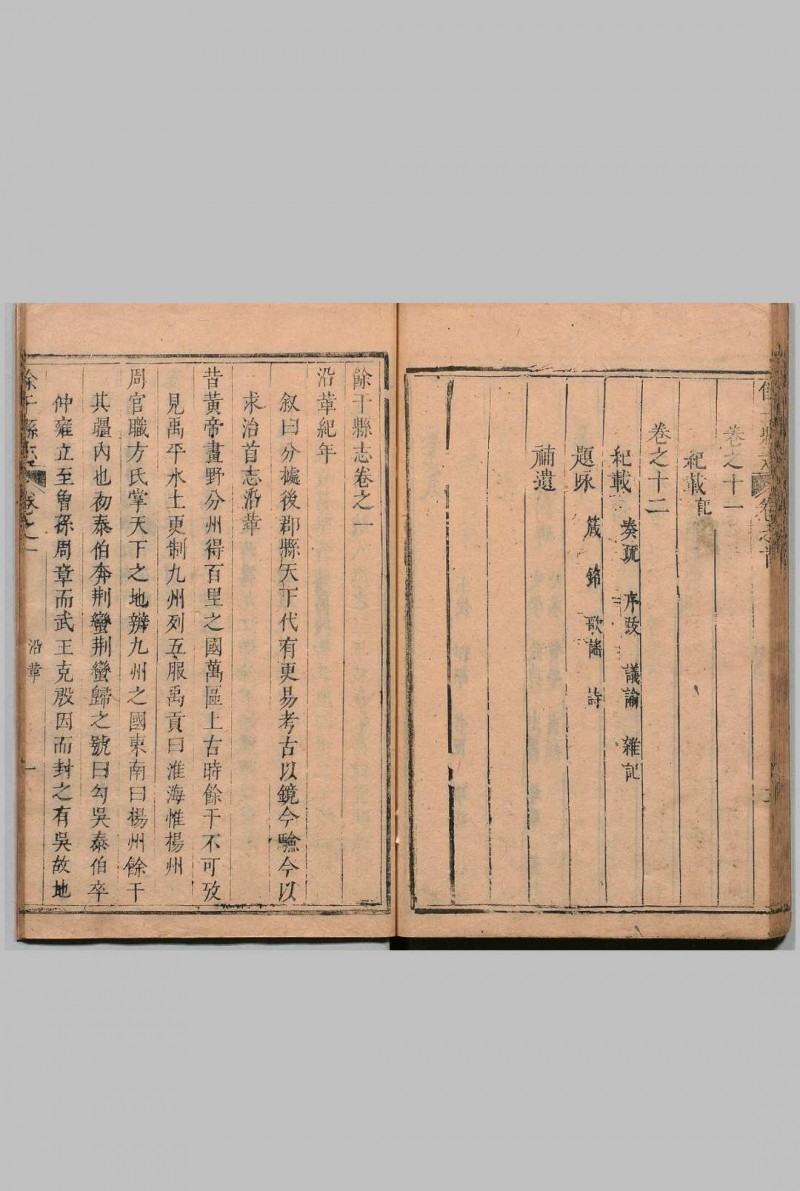 卷之十一
紀載記
卷之十二
紀載 奏疏 序跋 議論 雜記
題咏 箴 銘 歌謠 詩
補遺
餘干縣志卷之一
沿革紀年
叙曰分據後郡縣天下代有更易考古以鏡今驗今以
求治首志沿革
昔黃帝畫野分州得百里之國萬區上古時餘干不可攷
見禹平水土更制九州列五服禹貢曰淮海惟楊州
周官職方氏掌天下之地辨九州之國東南曰楊州餘干
其疆內也初泰伯奔荆蠻荆蠻歸之號曰勾吳泰伯卒
仲雍立至曾孫周章而武王克殷因而封之有吳故地
餘干縣志 卷之一 沿革 一